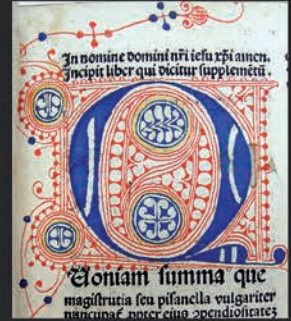 In nomine domini nr̃i iesu xp̃i amen.
Incipit liber qui dicitur supplemẽtũ.
QUoniam summa que
magistrutia seu pisanella vulgariter
nancupat᷒ propter eius ↄpendiositatez